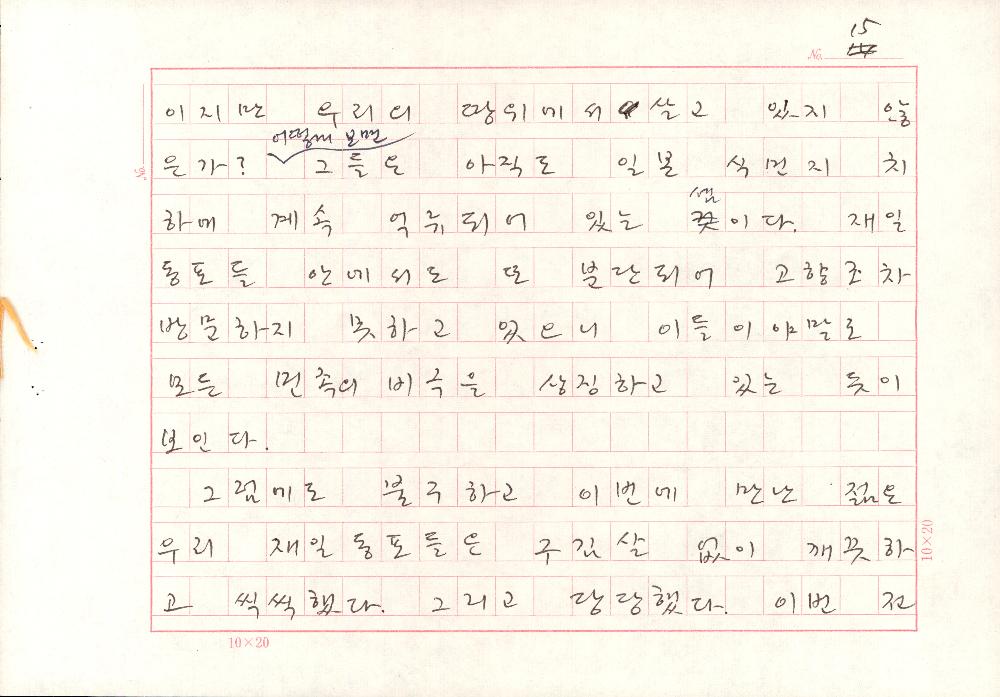 No. 15
이지만 우리의 땅위에서 살고 있지 않
어떻게 보면
은가? 그들은 아직도 일본 식민지 치
No.
하에 계속 억류되어 있는 셈이다. 재일
동포들 안에서도 또 분단되어 고향조차
방문하지 못하고 있으니 이들이야말로
모든 민족의 비극을 상징하고 있는 듯이
보인다.
그럼에도 불구하고 이번에 만난 젊은
우리 재일동포들은 구김살 없이 깨끗하
고 씩씩했다. 그리고 당당했다. 이번 전
10×20
10×20